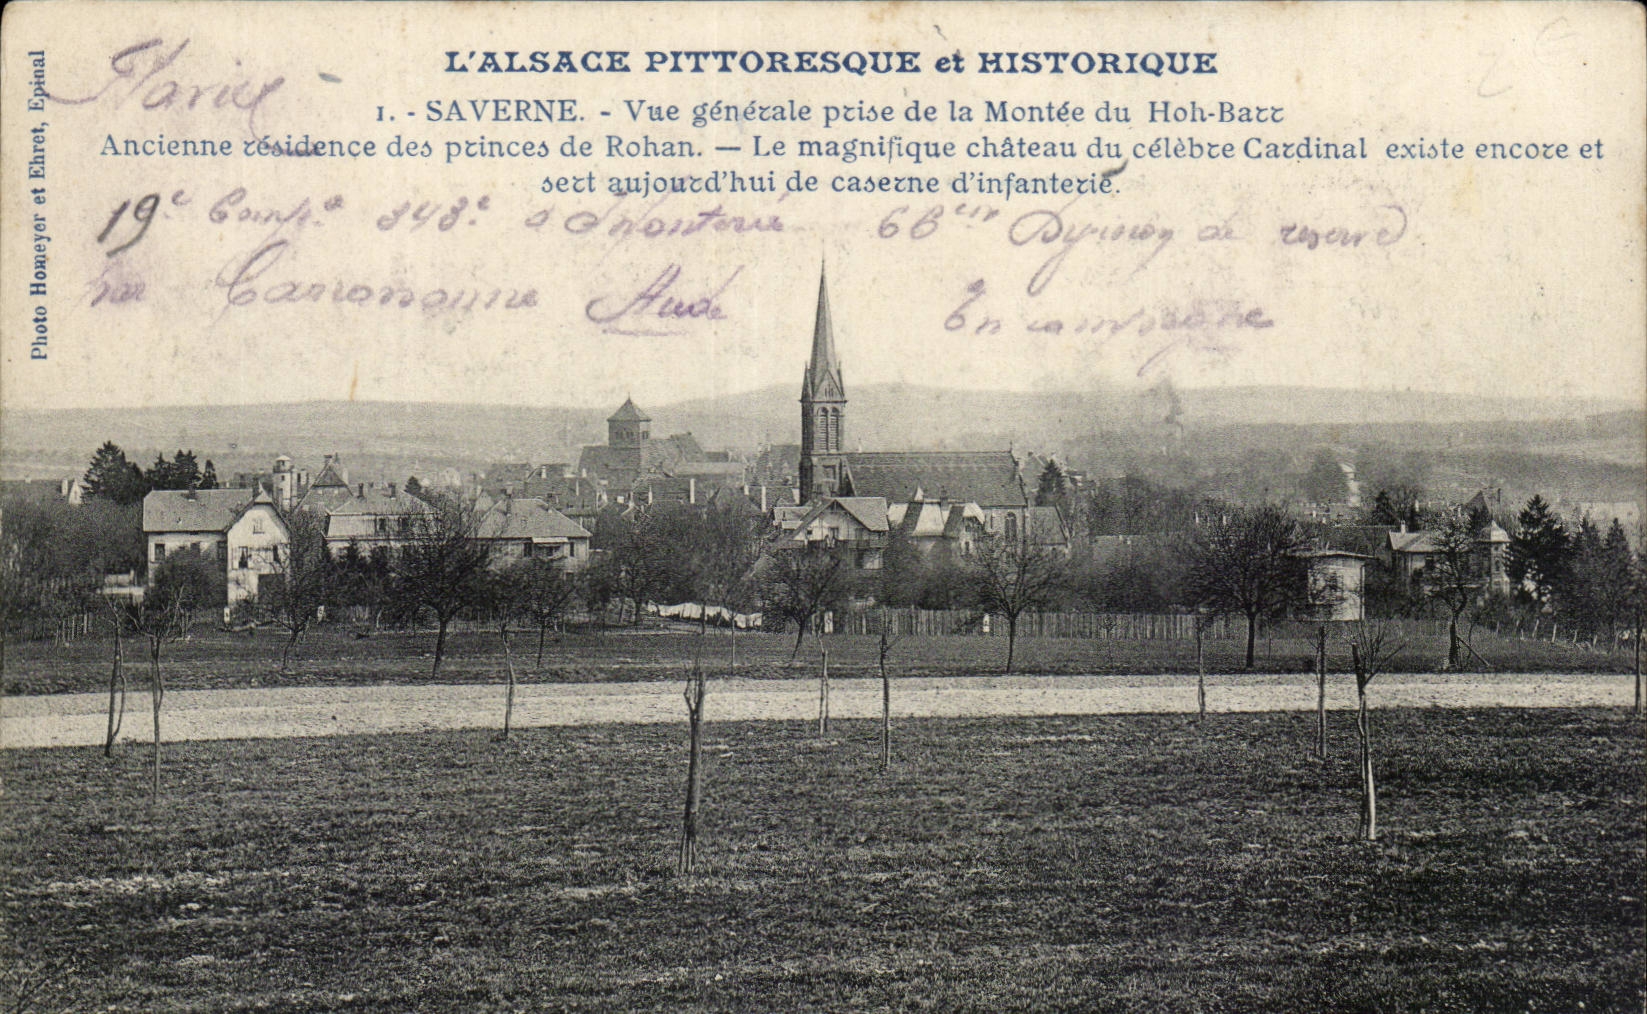 L'ALSACE PITTORESQUE et HISTORIQUE
1. - SAVERNE. - Vue générale prise de la Montée du Hoh-Barr
Ancienne résidence des princes de Rohan. — Le magnifique château du célèbre Cardinal existe encore et
sert aujourd'hui de caserne d'infanterie.
Photo Homeyer et Ehret, Epinal
19e Comp.ie 343e d'Infanterie 66e de reserve
par Carcassonne Aude
En campagne